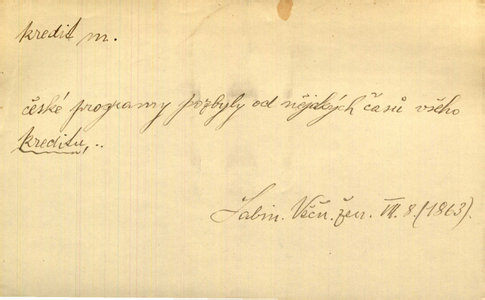 kredit m.
české programy pozbyly od nějakých časů všeho
kreditu,..
Sabin. Věčn. žen. III. 8. (1863).